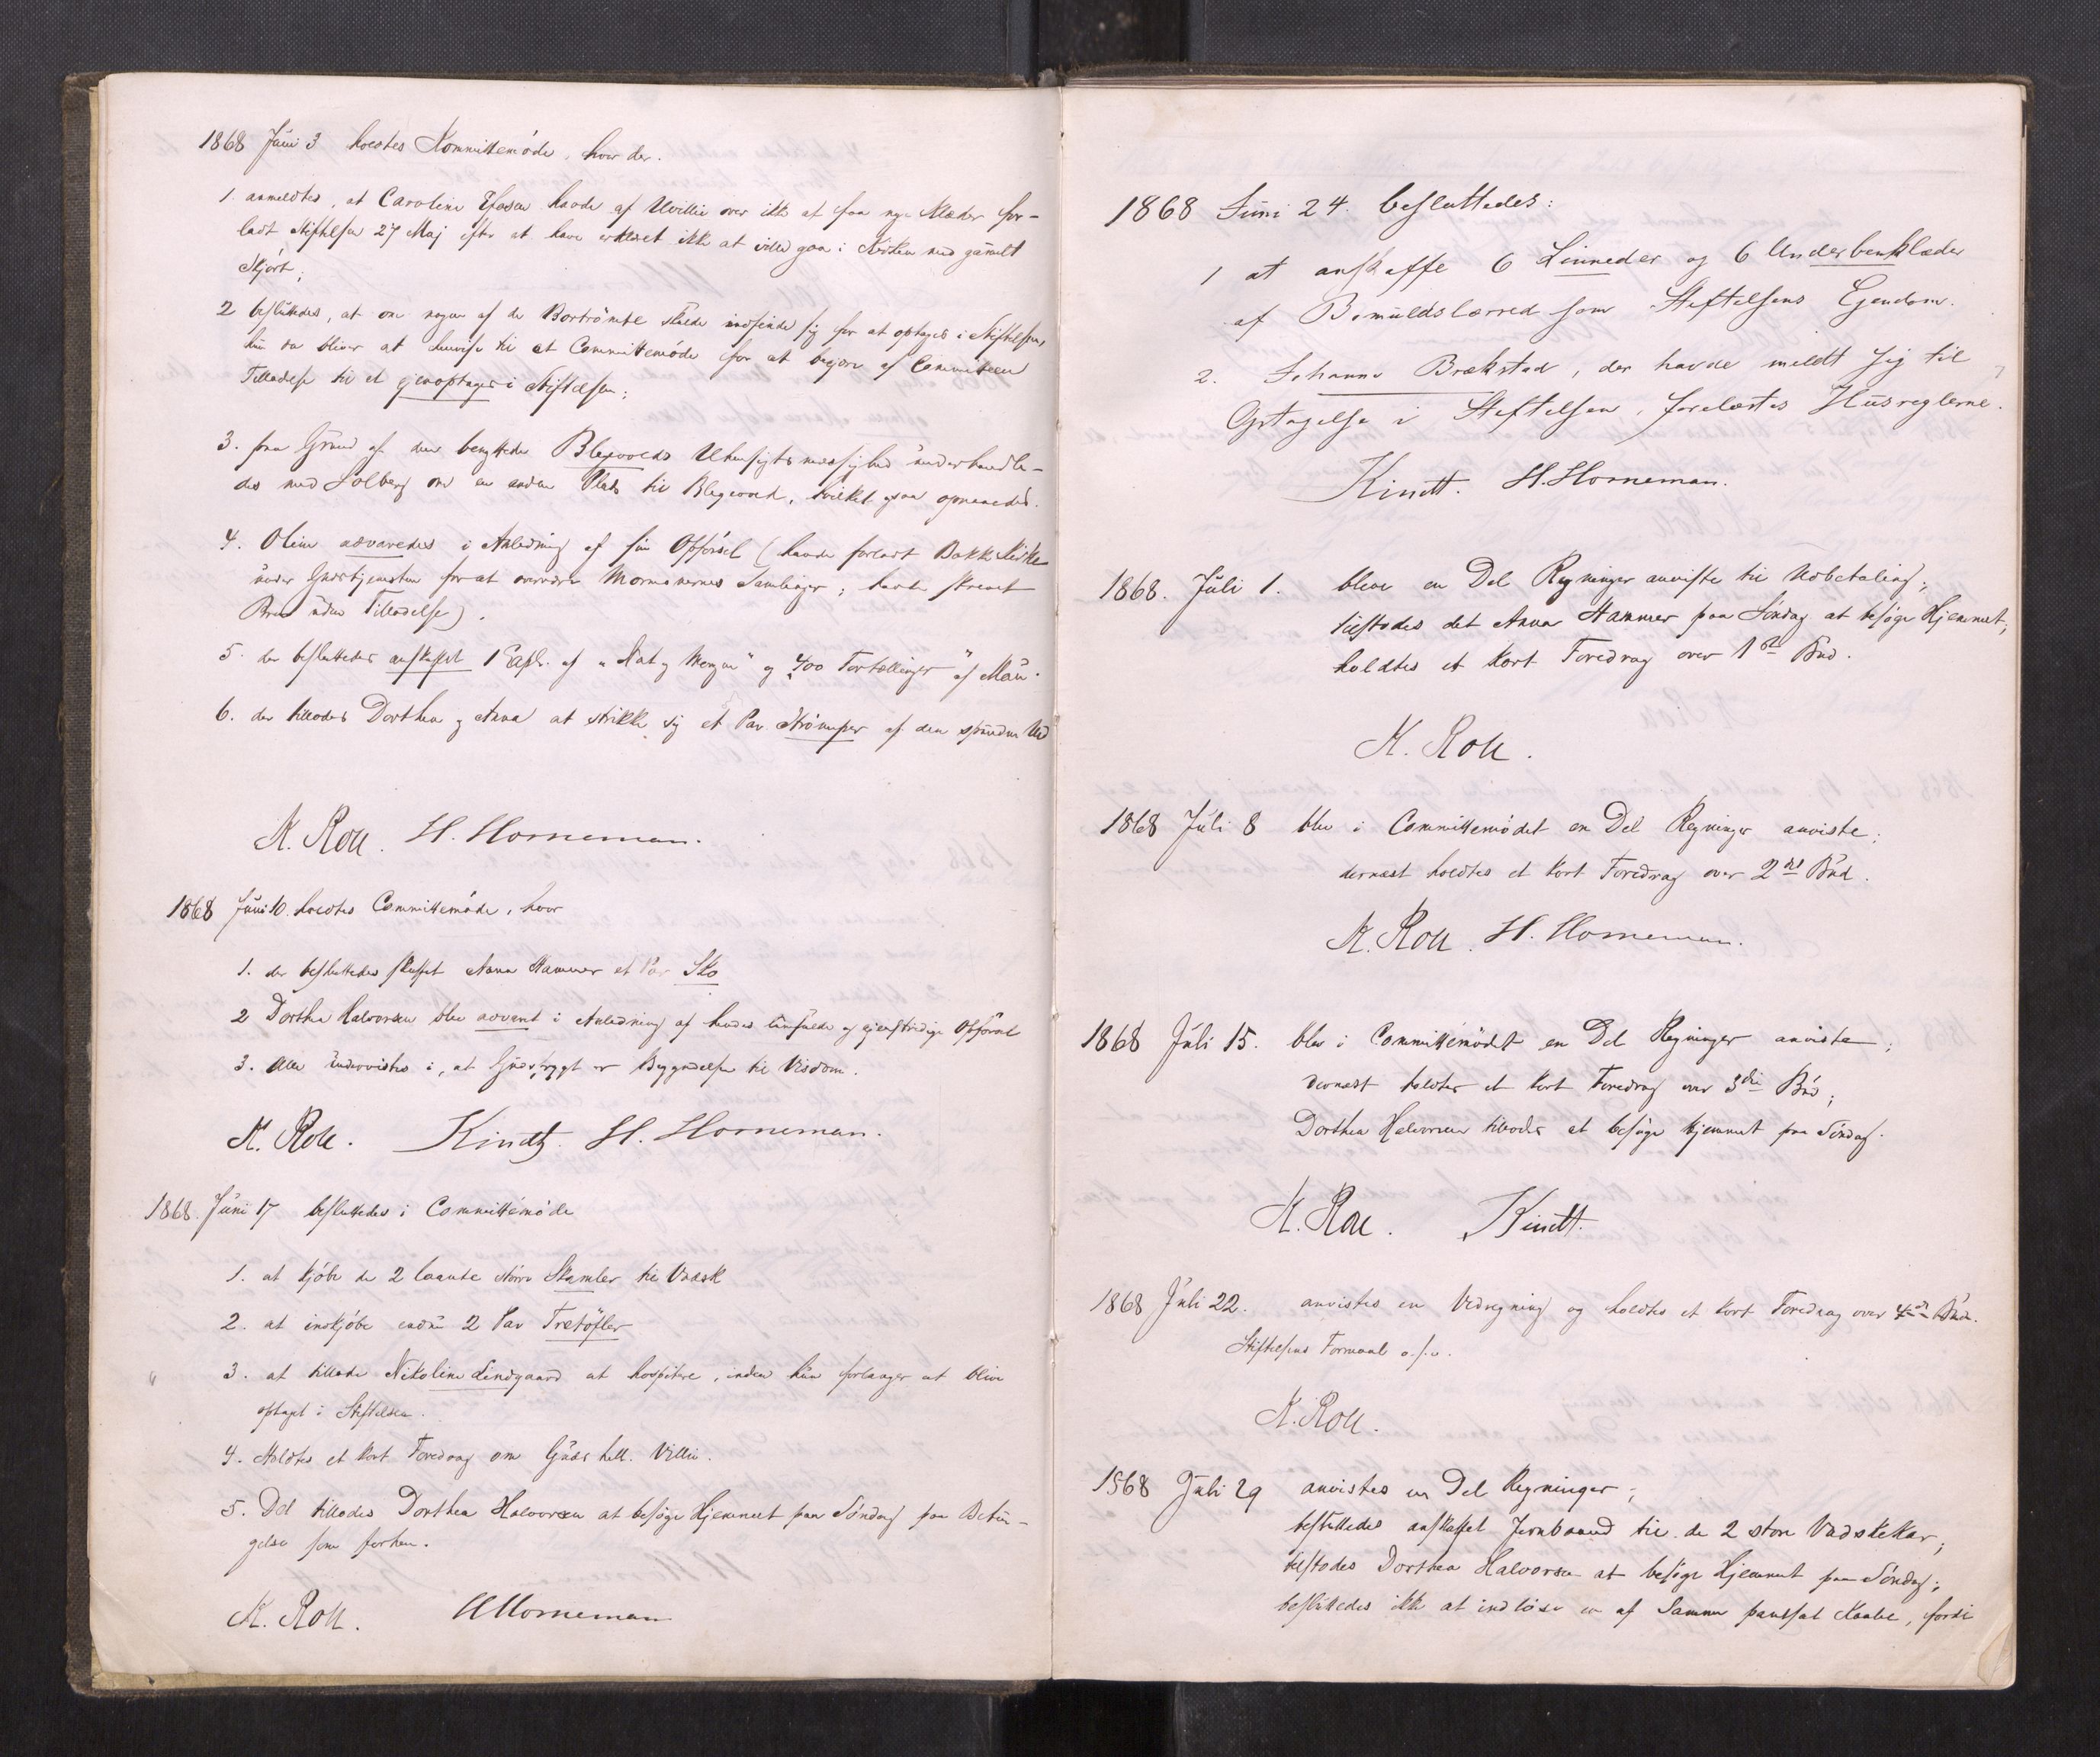 1868 Juni 3 holdtes Kommittemøde, hvor der.
1. anmeldtes, at Caroline havde af Uvillie over ikke at faa nye Klæder for-
ladt Stiftelsen 27 Maj efter at have erklæret ikke at ville gaa i Kirken med gamelt
Skjørt;
2 besluttedes, at om nogen af de Bortrømte skulde indfinde sig for at optages i Stiftelsen,
hun da bliver at henvise til et Committemøde for at begjære af Committeen
Tilladelse til at gjenoptages i Stiftelsen;
3. paa Grund af den benyttede Blegvolds Uhensigtsmæssighed underhandle-
des med Solberg om en anden Plads til Blegvold, hvilket ogsaa
4. Oline advaredes i Anledning af sin Opførsel (havde forladt Bakke Kirke
under Gudstjenesten for at overvære Mormonernes Samlinger; havde skrevet
Brev uden Tilladelse).
5. der besluttedes anskaffet 1 Expl. af "Nat og Morgen" og "400 Fortællinger" af
6. der tillodes Dorthea og Anna at strikke sig et Par Strømper af den spundne Uld
K. Roll. H. Horneman.
1868 Juni 10. holdtes Committemøde, hvor
1. der besluttedes skaffet Anna Hammer et Par Sko
2 Dorthea Halvorsen blev advaret i Anledning af hendes og gjenstridige Opførsel
3. Alle underviistes i, at Gudsfrygt er Begyndelsen til Visdom.
K. Roll. Kindt. H. Horneman.
1868. Juni 17 besluttedes i Committemøde
1. at kjøbe de 2 laante større Skamler til Vadsk
2. at indkjøbe endnu 2 Par Trætøfler
3. at tillade Nikoline Lindgaard at hospitere, inden hun forlanger at blive
optaget i Stiftelsen.
4. Holdtes et kort Foredrag om Guds hell. Villie.
5. Det tillodes Dorthea Halvorsen at besøge Hjemmet paa Søndag paa Betin-
gelse som forhen.
K. Roll. H Horneman
1868 Juni 24. besluttedes:
1 at anskaffe 6 Linneder og 6 Underbenklæder
af Bomuldslærred som Stiftelsens Ejendom.
2. Johanna Brækstad, der havde meldt sig til
Optagelse i Stiftelsen, forelæstes Husreglerne.
Kindt. H. Horneman.
1868. Juli 1. bleve en Del Regninger anviste til Udbetaling;
tilstodes det Anna Hammer paa Søndag at besøge Hjemmet;
holdtes et kort Foredrag over 1ste Bud.
K. Roll.
1868 Juli 8 blev i Committemødet en Del Regninger anviste;
dernæst holdtes et kort Foredrag over 2det Bud.
K. Roll. H. Horneman.
1868 Juli 15. blev i Committemødet en Del Regninger anviste;
dernæst holdtes et kort Foredrag over 3die Bud;
Dorthea Halvorsen tillodes at besøge Hjemmet paa Søndag.
K. Roll. Kindt.
1868 Juli 22. anvistes en Vedregning og holdtes et kort Foredrag over 4de Bud.
Stiftelsens Formaal o.s.v.
K. Roll.
1868 Juli 29 anvistes en Del Regninger;
besluttedes anskaffet Jernbaand til de 2 store Vadskekar;
tilstodes Dorthea Halvorsen at besøge Hjemmet paa Søndag;
besluttedes ikke at indløse en af Samme pantsat Kaabe, fordi